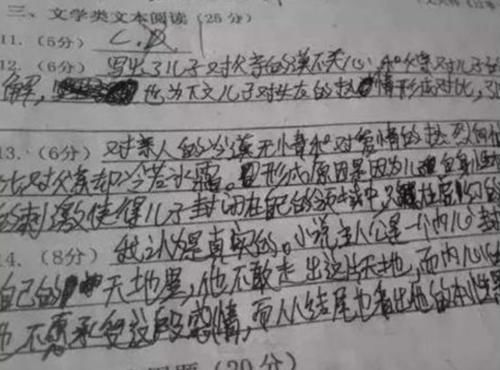 三、文学类文本阅读(25分)
11. (5分) C.D.
12. (6分) 写出了儿子对父亲的漠不关心,和父亲对儿子的
解, 也为下文儿子对女友的热情形成对比,
13. (6分) 对亲人的冷漠无情和对爱情的热烈向
比对父亲却冷若冰霜。形成原因是因为儿
的刺激使得儿子封闭在自己的领域中,
14. (8分) 我认为是真实的。小说主人公是一个内心封
自己的天地里,他不敢走出这片天地,而内心
也不愿承受这段感情,而从结尾也看出他的本性
(20分)